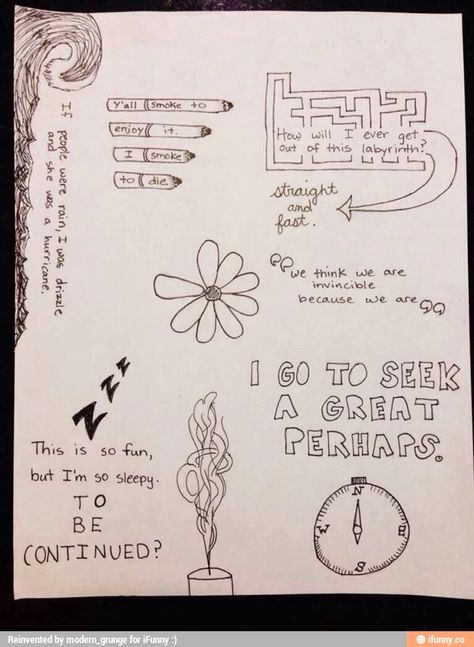 If people were rain, I was drizzle
and she was a hurricane.
Y'all smoke to
enjoy it.
I smoke
to die.
How will I ever get
out of this labyrinth?
straight
and
fast.
"we think we are
invincible
because we are"
I GO TO SEEK
A GREAT
PERHAPS.
Z Z Z
This is so fun,
but I'm so sleepy.
TO
BE
CONTINUED?
N
W E
S
Reinvented by modern_grunge for iFunny :)
ifunny.co